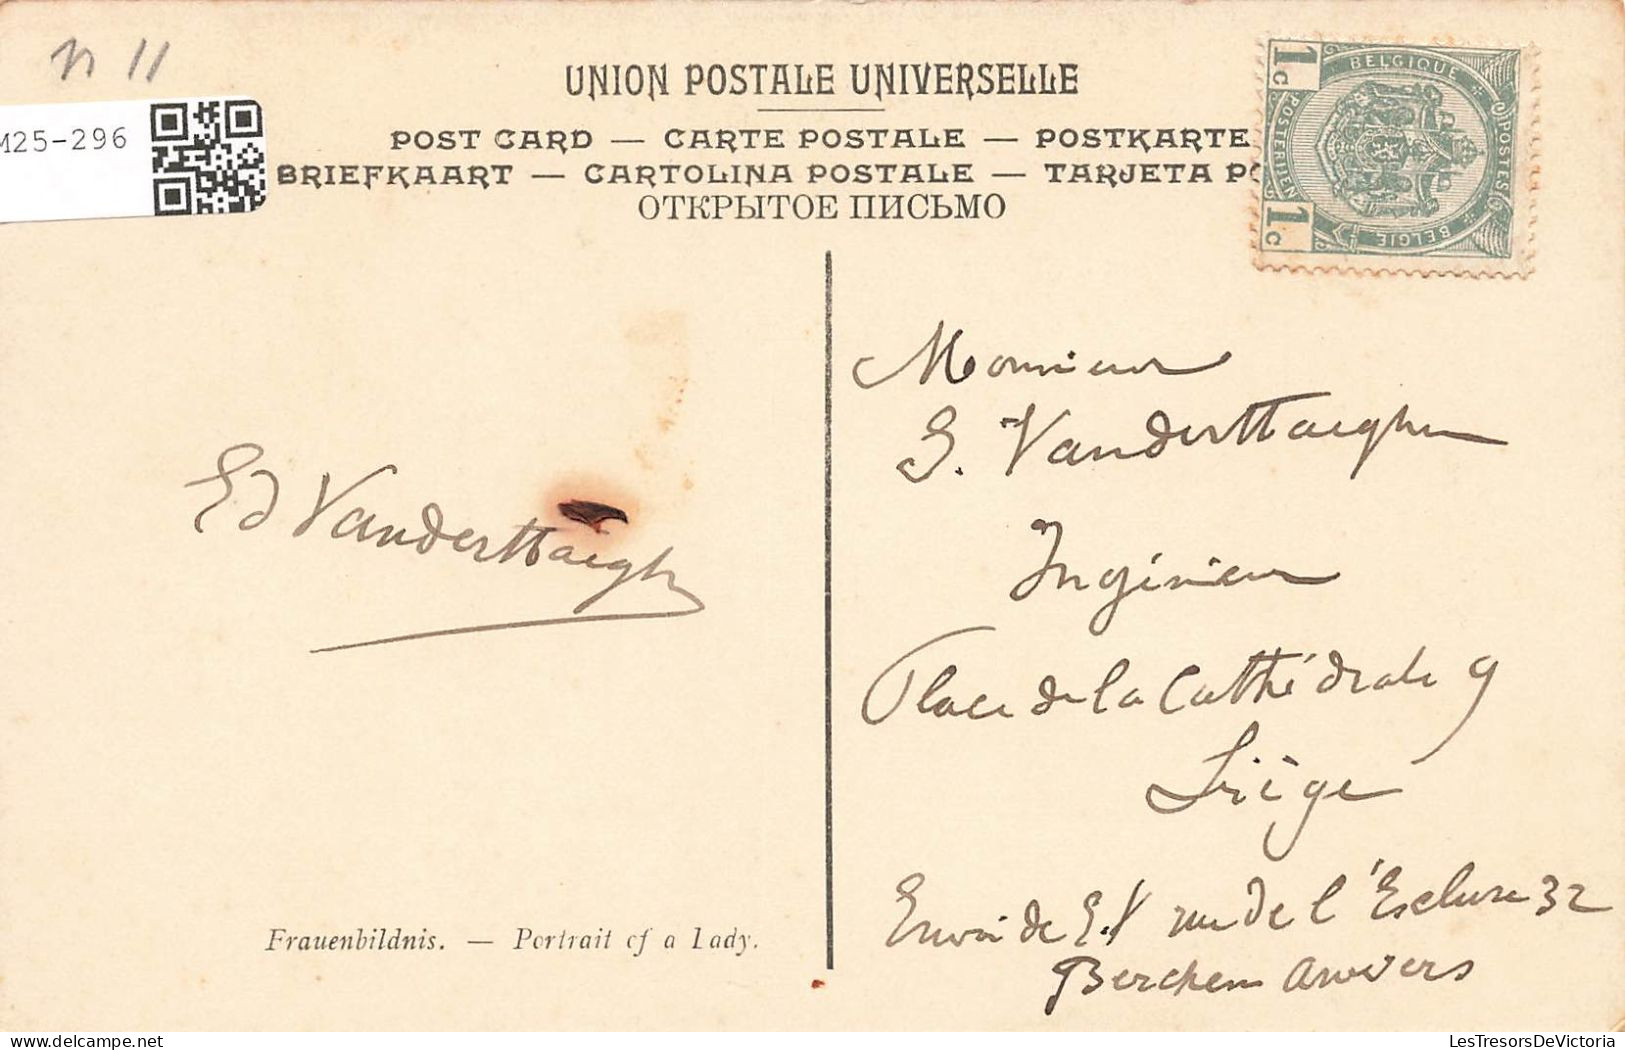 n 11
M25-296
UNION POSTALE UNIVERSELLE
POST CARD — CARTE POSTALE — POSTKARTE
BRIEFKAART — CARTOLINA POSTALE — TARJETA PO
ОТКРЫТОЕ ПИСЬМО
1c BELGIQUE POSTES
POSTERIJEN
1c BELGIE
Monsieur
S. Vanderstaeghen
Ed Vanderstaeghen
Ingénieur
Place de la Cathédrale 9
Liège
Envoi de E.V rue de l'Ecluse 32
Berchem Anvers
Frauenbildnis. — Portrait of a Lady.
LesTresorsDeVictoria